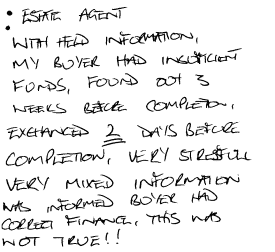 • ESTATE AGENT
• WITH HELD INFORMATION,
MY BUYER HAD INSUFICIENT
FUNDS, FOUND OUT 3
WEEKS BEFORE COMPLETION,
EXCHANGED 2 DAYS BEFORE
COMPLETION, VERY STRESFULL
VERY MIXED INFORMATION
WAS INFORMED BUYER HAD
CORRECT FINANCE, THIS WAS
NOT TRUE!!